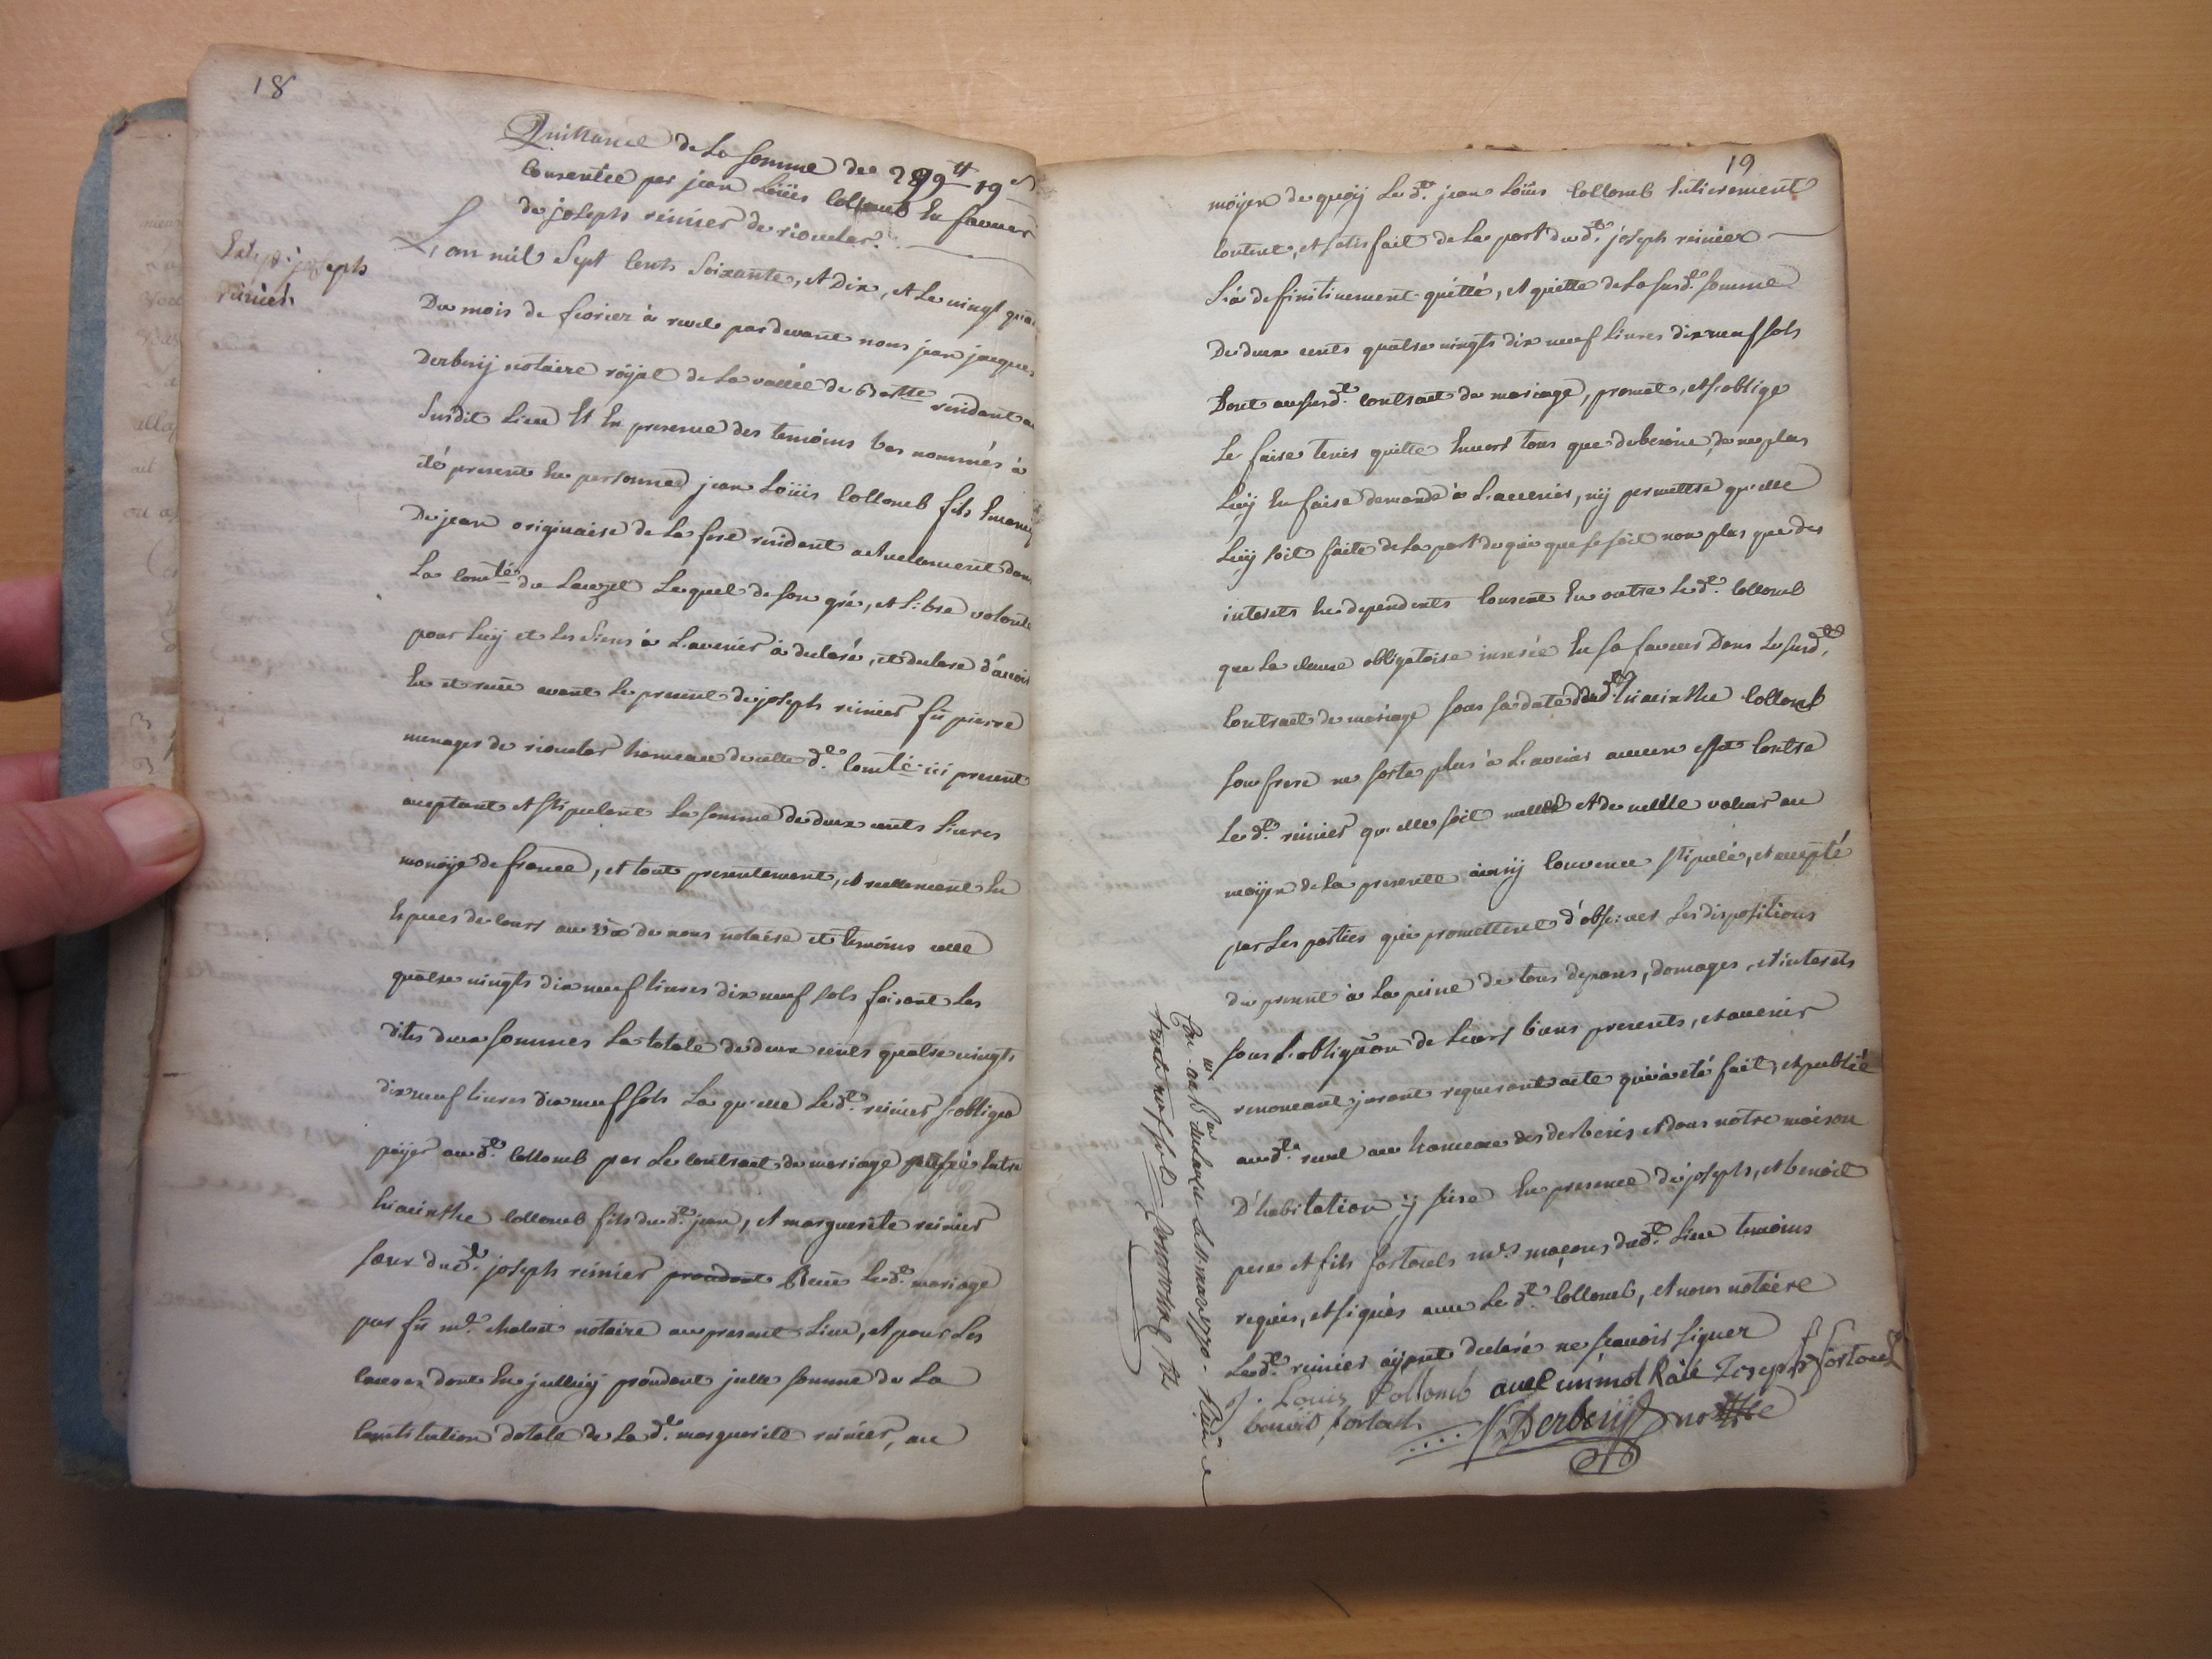 18
Quittance de La somme de 299tt 19s
Consentie par jean Loüis Collomb En faveur
de joseph reinier de rioucler.
Extep. joseph
reinier.
L'an mil Sept Cents Soixante, et Dix, et Le vingt quat
Du mois de fevrier à revel par devant nous jean jacques
Derbesÿ notaire roÿal de La vallée de Bartte residant au
Susdit Lieu Et En presence des temoins bas nommés à
été present En personne jean Loüis Collomb fils Emancip
De jean originaire de La fresse residant actuelement dans
La Comté du Lauzet Lequel de son gré, et Libre volonté
pour Luÿ et Les Siens à L'avenir à declaré, et declare d'avoir
Eu et receu avant Le present de joseph reinier fû pierre
menager de rioucler hameau de cette de. Comté ici present
aceptant et stipulant La somme de deux cents Livres
monoÿe de france, et tout presentement, et reellement En
Especes de cours au veu de nous notaire et temoins celle
quatre vingts dix neuf Livres dix neuf sols faisant Les
dites deux sommes La totale de deux cents quatre vingts
dix neuf Livres dix neuf sols La quelle Led. reinier s'obligea
païer aud. Collomb par Le Contract de mariage passé Entre
hiacinthe Collomb fils dud. jean, et marguerite reinier
sœur dud. joseph reinier Receu Led. mariage
par fû me. notaire au present Lieu, et pour Les
causes dont En jcelluÿ procedant jcelle somme de La
Constitution dotale de La de. marguerite reinier, au
19
moÿen de quoÿ Led. jean Loüis Collomb Entierement
Content, et satisfait de La part dud. joseph reinier
L'à definitivement quitté, et quitte de La susd. somme
De deux cents quatre vingts dix neuf Livres dix neuf sols
Dont au susd. Contract de mariage, promet, et s'oblige
Le faire tenir quitte Envers tous que de besoin, de ne plus
Luÿ En faire demande à L'avenir, nÿ permettre qu'elle
Luÿ soit faite de La part de qui que se soit non plus que des
interets En dependents Consent En outre Led. Collomb
que La clause obligatoire inserée En sa faveur Dans Le susd.
Contract de mariage sous sa date dud. hiacinthe Collomb
son frere ne sorte plus à L'avenir aucun effet Contre
Led. reinier qu'elle soit nulle et de nulle valeur au
moÿen de La presente ainsÿ Convenu stipulé, et accepté
par Les parties qui promettent d'observer Les dispositions
du present à La peine de tous depens, domages, et interets
sous L'obligaõn de Leurs biens presents, et avenir
renonceant jurant requerant acte qui à eté fait, et publié
aud. revel au hameau des derbesis et dans notre maison
D'habitation ÿ sise En presence de joseph, et benoit
pere et fils fortouls mes. maçons dud. Lieu temoins
requis, et signés avec Led. Collomb, et nous notaire
Led. reinier aÿant declaré ne sçavoir signer
J. Louis Collomb avec un mot Raïé Joseph fortoul
benoit fortoul
Derbesÿ notre
Con. au Bau du Lauzet Le 11 mars 1770 - Reçu
trente neuf sols